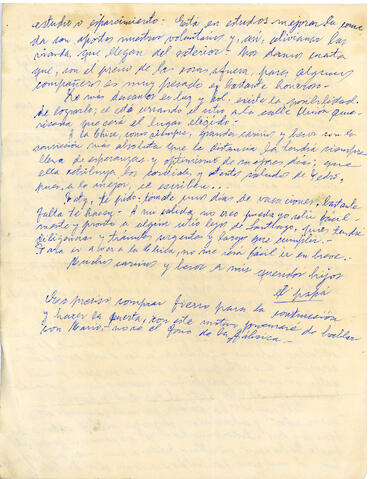 estudio o esparcimiento.- Está en estudios mejorar la comi
da con aportes nuestros voluntarios y, así, aliviamos las
viandas que llegan del exterior.- Nos damos cuenta
que, con el precio de las cosas afuera, para algunos
compañeros es muy pesado y bastante honeroso.-
Lo más deseado es luz y sol, existe la posibilidad
de lograrlo, se está viendo el
será el lugar elegido.-
A la Chica, como siempre, grandes cariños y besos con la
convicción más absoluta que la distancia la tendrá siempre
llena de esperanzas y optimismo de mejores días; que
ella retribuya los saludos, afecto saludos de Pedro,
pues, a lo mejor, se escriben...
Paty, te pido: tómate unos días de vacaciones, bastante
falta te hacen.- A mi salida no creo pueda yo salir facil-
mente y pronto a algún sitio lejos de Santiago, pues tendré
diligencias y trámites urgentes y largos que cumplir.-
Para ir a ver a la Chica, no me será fácil ir en breve.-
Muchos cariños y besos a mis queridos hijos
El papá
Es preciso comprar fierro para la construcción
y hacer la puerta, con este motivo
con Mario.- no sé el fono de la